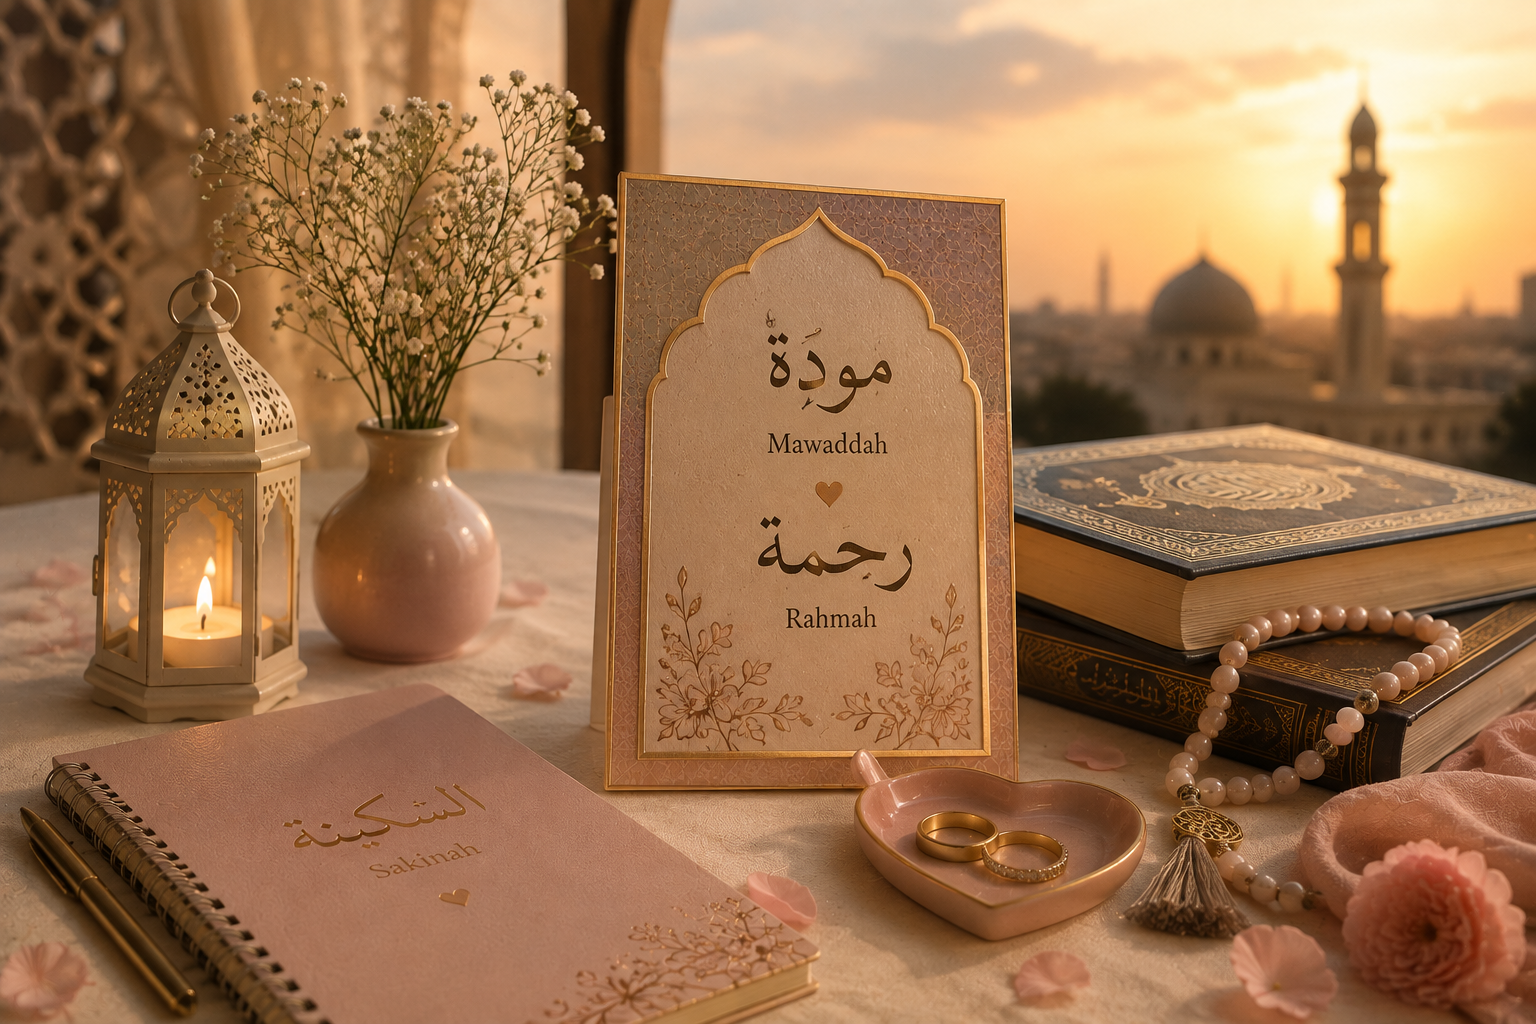 مودَة
Mawaddah
رحمة
Rahmah
الشكينة
Sakinah